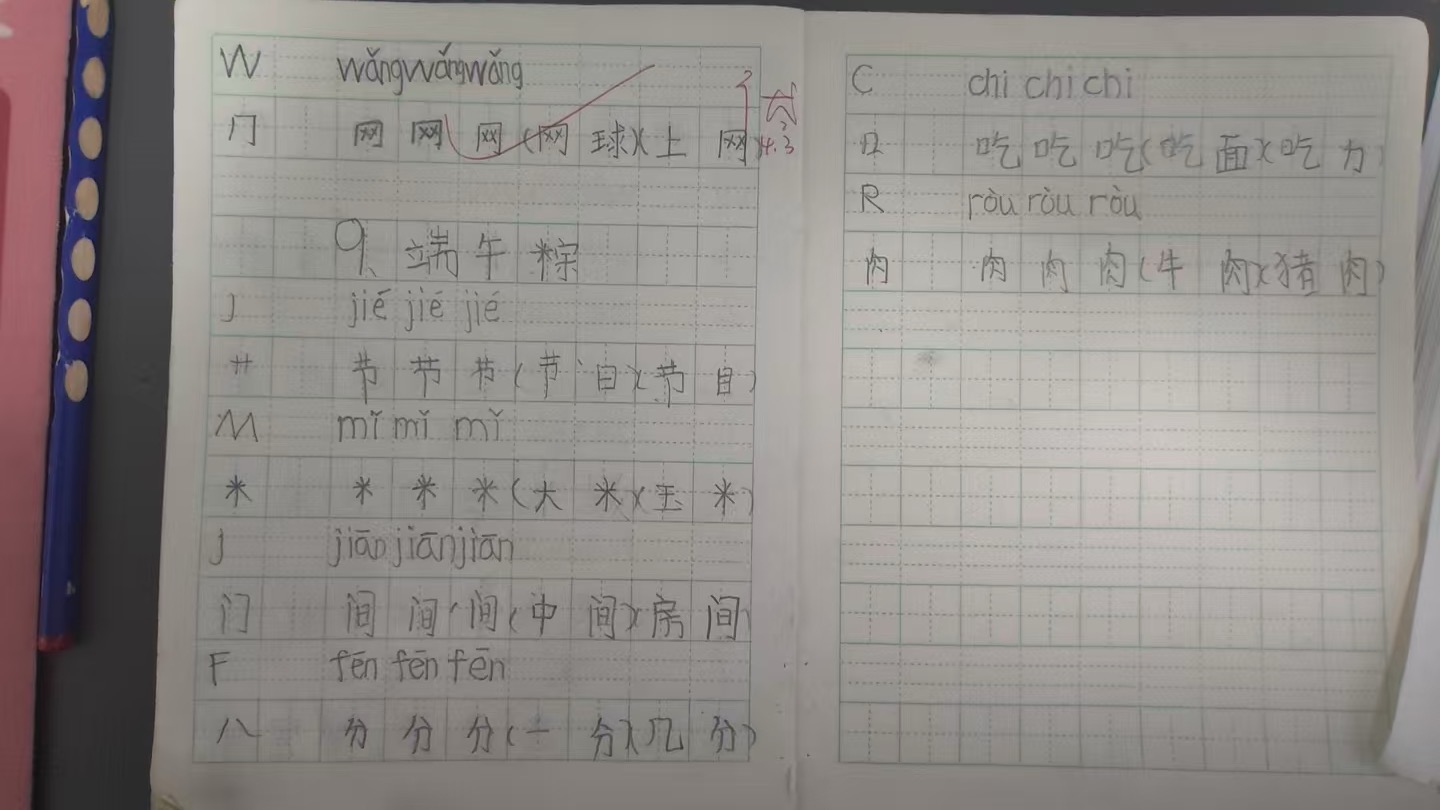 W wǎng wǎng wǎng
冂 网 网 网 (网 球)(上 网)
4.3
9、端 午 粽
J jié jié jié
艹 节 节 节 (节 日)(节 目)
M mǐ mǐ mǐ
米 米 米 米 (大 米)(玉 米)
J jiān jiān jiān
门 间 间 间 (中 间)(房 间)
F fēn fēn fēn
八 分 分 分 (一 分)(几 分)
C chi chi chi
口 吃 吃 吃 (吃 面)(吃 力)
R ròu ròu ròu
肉 肉 肉 肉 (牛 肉)(猪 肉)